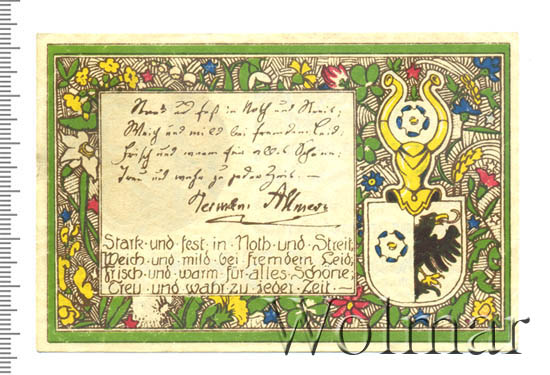 Stark und fest in Noth und Streit;
Weich und mild bei fremdem Leid,
Frisch und warm für alles Schöne;
Treu und wahr zu jeder Zeit. —
Herman Allmers
Stark·und·fest·in·Noth·und·Streit,
Weich·und·mild·bei·fremdem·Leid,
Frisch·und·warm·für·alles·Schöne,
Treu·und·wahr·zu·jeder·Zeit.—
Wolmar